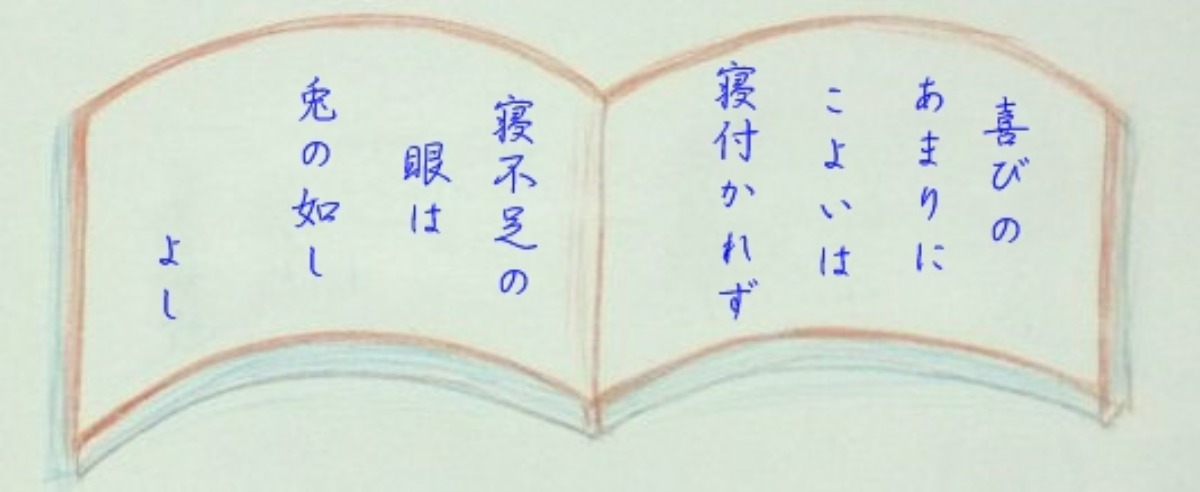 喜びの
あまりに
こよいは
寝付かれず
寝不足の
眼は
兎の如し
よし